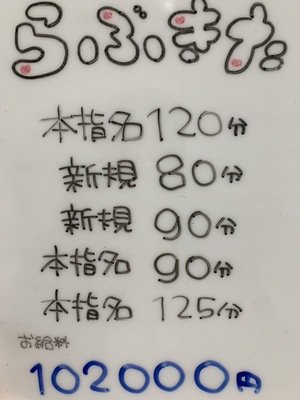 らぶきた
本指名 120分
新規 80分
新規 90分
本指名 90分
本指名 125分
お給料
102000円